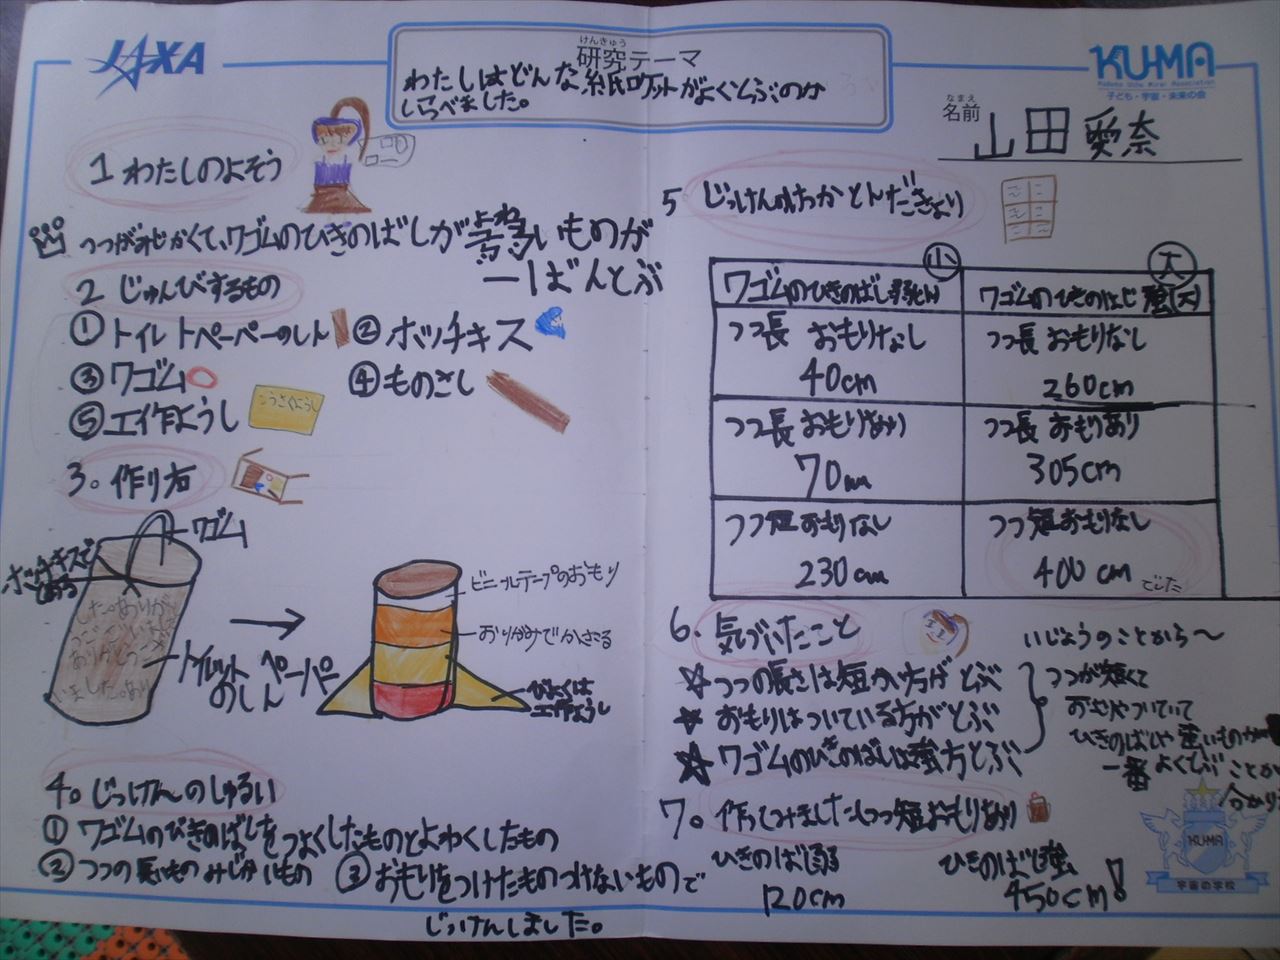 JAXA
けんきゅう
研究テーマ
わたしはどんな紙ロケットがよくとぶのか
しらべました。
KU-MA
子ども・宇宙・未来の会
なまえ
名前
山田愛奈
1 わたしのよそう
つつがみじかくて、ワゴムのひきのばしが
よわ
いものが
一ばんとぶ
2 じゅんびするもの
① トイレットペーパーのしん
② ホッチキス
③ ワゴム
④ ものさし
⑤ 工作ようし
こうさくようし
3. 作り方
ワゴム
ホッチキスで
とめる
トイレット ペーパー
のしん
ビニールテープのおもり
おりがみでかざる
びよくは
工作ようし
4. じっけんのしゅるい
① ワゴムのひきのばしをつよくしたものとよわくしたもの
② つつの長いものみじかいもの
③ おもりをつけたものつけないもので
じっけんしました。
5 じっけんのけっかとんだきょり
小
大
ワゴムのひきのばし弱(小)
ワゴムのひきのばし強(大)
つつ長 おもりなし
40cm
つつ長 おもりなし
260cm
つつ長 おもりあり
70cm
つつ長 おもりあり
305cm
つつ短おもりなし
230cm
つつ短おもりなし
400cm
でした
6. 気づいたこと
☆ つつの長さは短かい方がとぶ
☆ おもりはついている方がとぶ
☆ ワゴムのひきのばしは強方とぶ
いじょうのことから〜
つつが短くて
おもりがついていて
ひきのばしが強いものが
一番よくとぶことが
分かり
7. 作ってみましたつつ短おもりあり
ひきのばし弱
120cm
ひきのばし強
450cm!
KU-MA
宇宙の学校